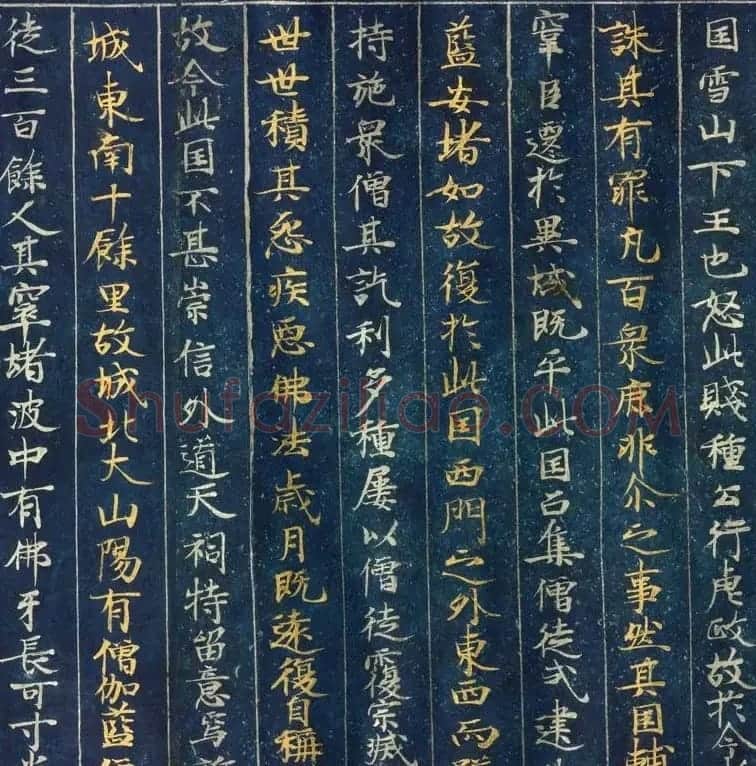 国雪山下王也怒此賤種公行虐政故於今
誅其有罪凡百衆庶非尒之事然其国輔
宰臣遷於異域既平此国召集僧徒式建
藍安堵如故復於此国西門之外東西而
持施衆僧其訖利多種屢以僧徒覆宗滅
世世積其怨疾惡佛法歳月既遠復自稱
故今此国不甚崇信外道天祠特留意焉
城東南十餘里故城北大山陽有僧伽藍
徒三百餘人其窣堵波中有佛牙長可寸
Shufaziliao.com